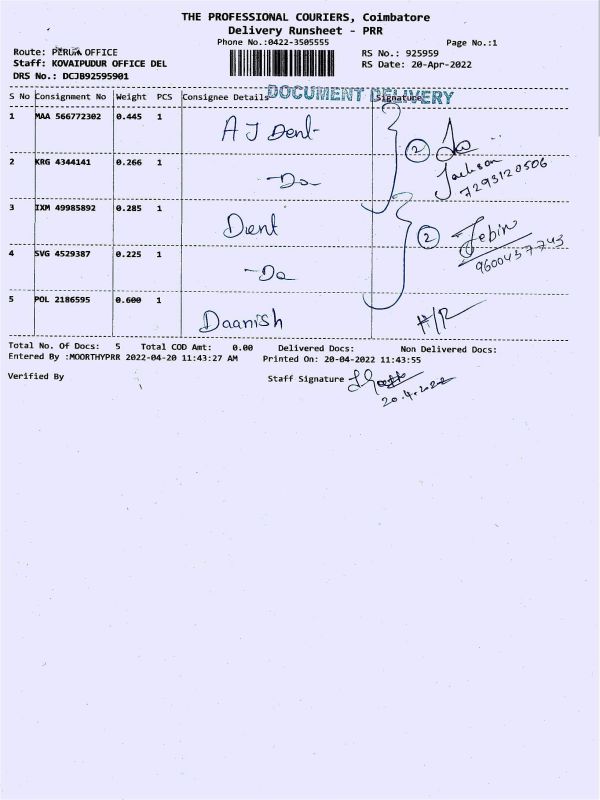 THE PROFESSIONAL COURIERS, Coimbatore
Delivery Runsheet - PRR
Phone No.:0422-3505555
Page No.:1
Route: OFFICE
RS No.: 925959
Staff: KOVAIPUDUR OFFICE DEL
RS Date: 20-Apr-2022
DRS No.: DCJB92595901
DOCUMENT DELIVERY
S No Consignment No Weight PCS Consignee Details Signature
1 MAA 566772302 0.445 1 A J Dent-
2 KRG 4344141 0.266 1 -Do
2 Jackson
7293120506
3 IXM 49985892 0.285 1 Dent
4 SVG 4529387 0.225 1 -Do
2 Jebin
9600437743
5 POL 2186595 0.600 1 Daanish H/R
Total No. Of Docs: 5 Total COD Amt: 0.00 Delivered Docs: Non Delivered Docs:
Entered By :MOORTHYPRR 2022-04-20 11:43:27 AM Printed On: 20-04-2022 11:43:55
Verified By Staff Signature
20.4.2022